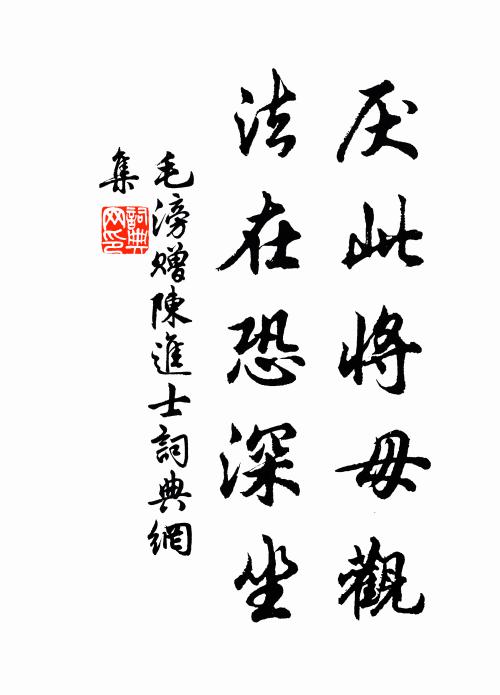 厌此将毋觀
法在恐深坐
毛滂贈陳進士詞典網
集
詞典
网印